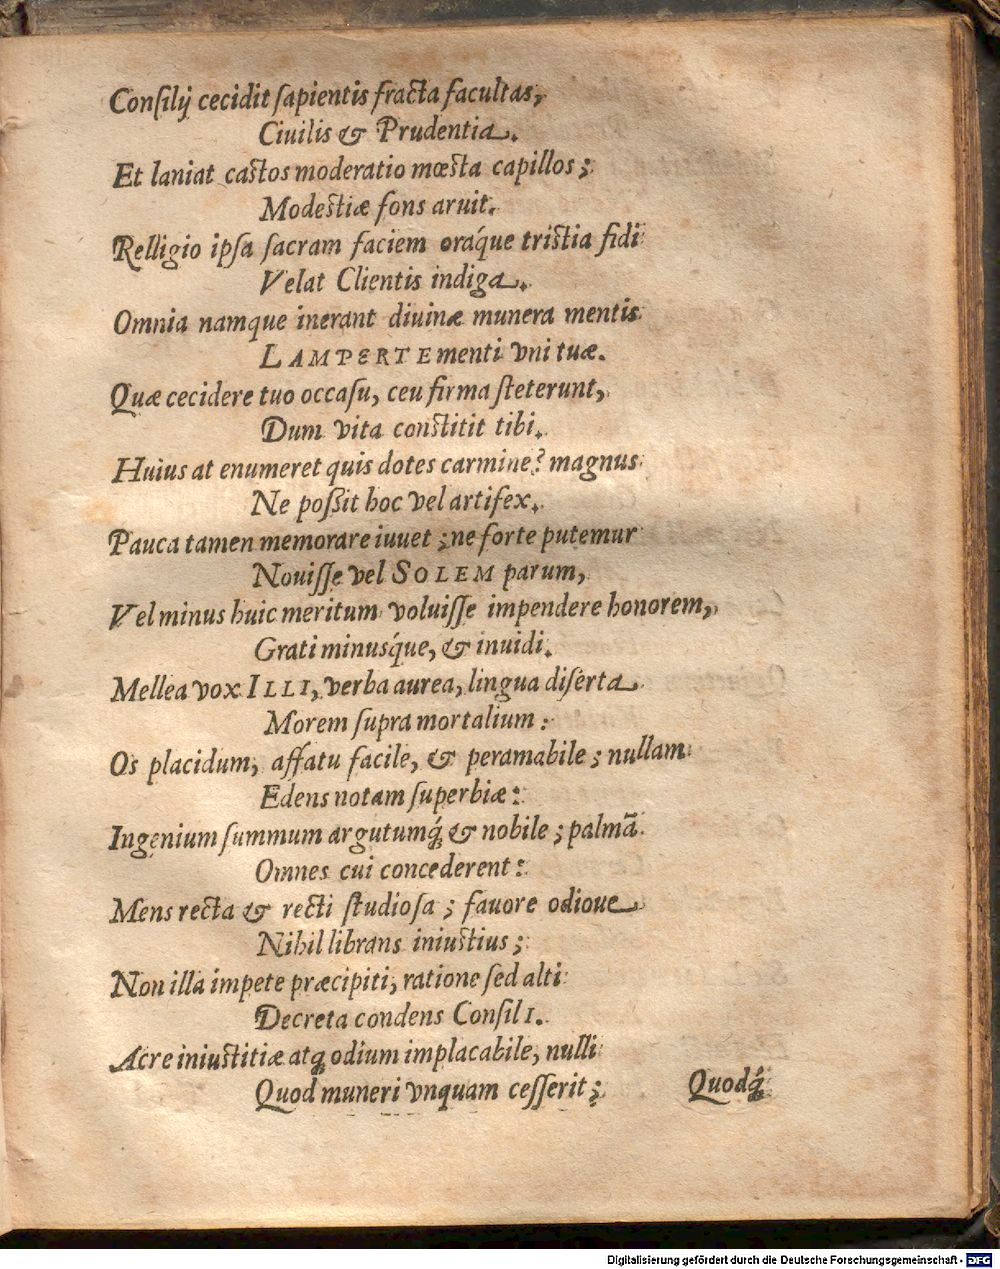 Consilij cecidit sapientis fracta facultas,
Ciuilis & Prudentia.
Et laniat castos moderatio mœsta capillos;
Modestiæ fons aruit.
Relligio ipsa sacram faciem oráque tristia fidi
Velat Clientis indiga.
Omnia namque inerant diuinæ munera mentis
LAMPERTE menti vni tuæ.
Quæ cecidere tuo occasu, ceu firma steterunt,
Dum vita constitit tibi.
Huius at enumeret quis dotes carmine? magnus
Ne poßit hoc vel artifex.
Pauca tamen memorare iuuet; ne forte putemur
Nouisse vel SOLEM parum,
Vel minus huic meritum voluisse impendere honorem,
Grati minusq́ue, & inuidi.
Mellea vox ILLI, verba aurea, lingua diserta
Morem supra mortalium:
Os placidum, affatu facile, & peramabile; nullam
Edens notam superbiæ:
Ingenium summum argutumq́; & nobile; palmā
Omnes cui concederent:
Mens recta & recti studiosa; fauore odioue
Nihil librans iniustius;
Non illa impete præcipiti, ratione sed alti
Decreta condens ConsilI.
Acre iniustitiæ atq; odium implacabile, nulli
Quod muneri vnquam cesserit;
Quodq́;
Digitalisierung gefördert durch die Deutsche Forschungsgemeinschaft - DFG